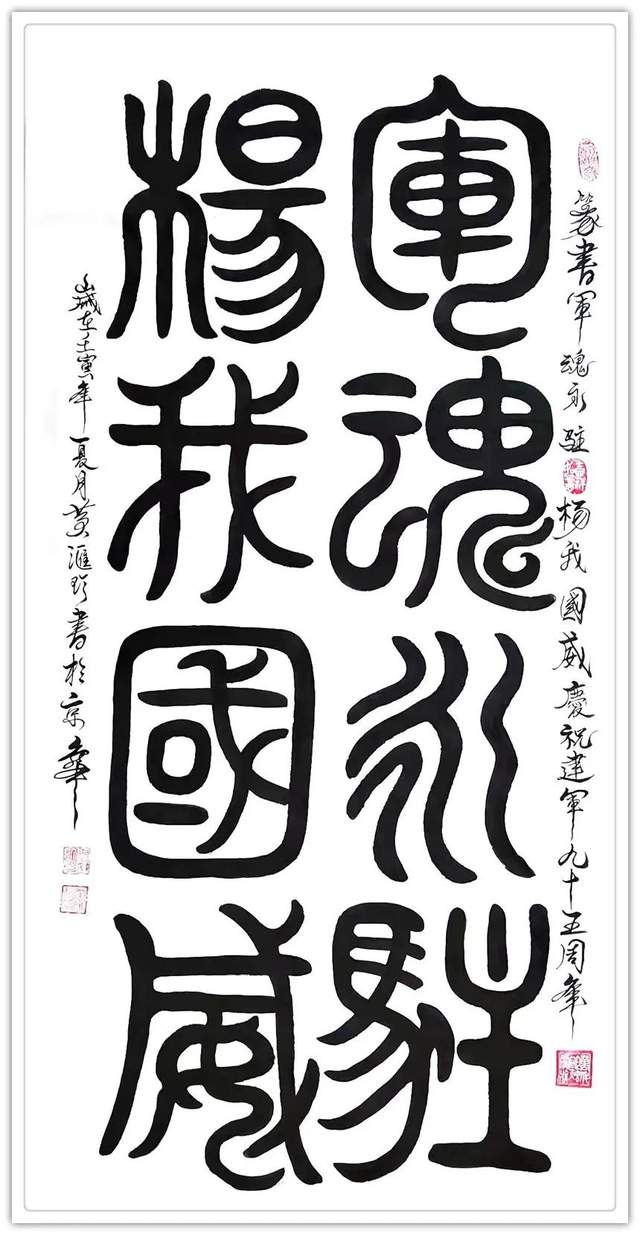 篆書軍魂永駐楊我國威慶祝建軍九十五周年
軍魂永駐
楊我國威
歲在壬寅年夏月黃滙珍書於京華